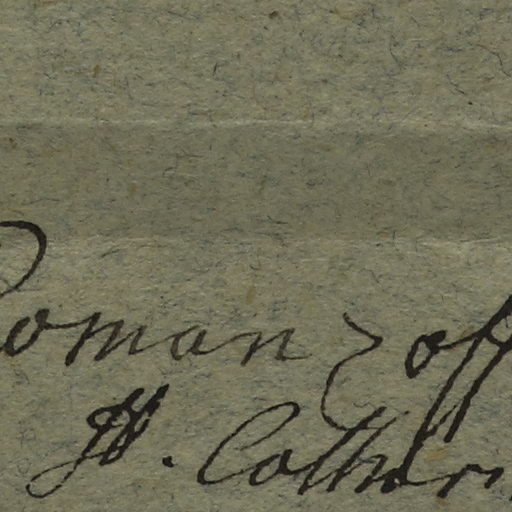 Romanzoff
H. Cathar